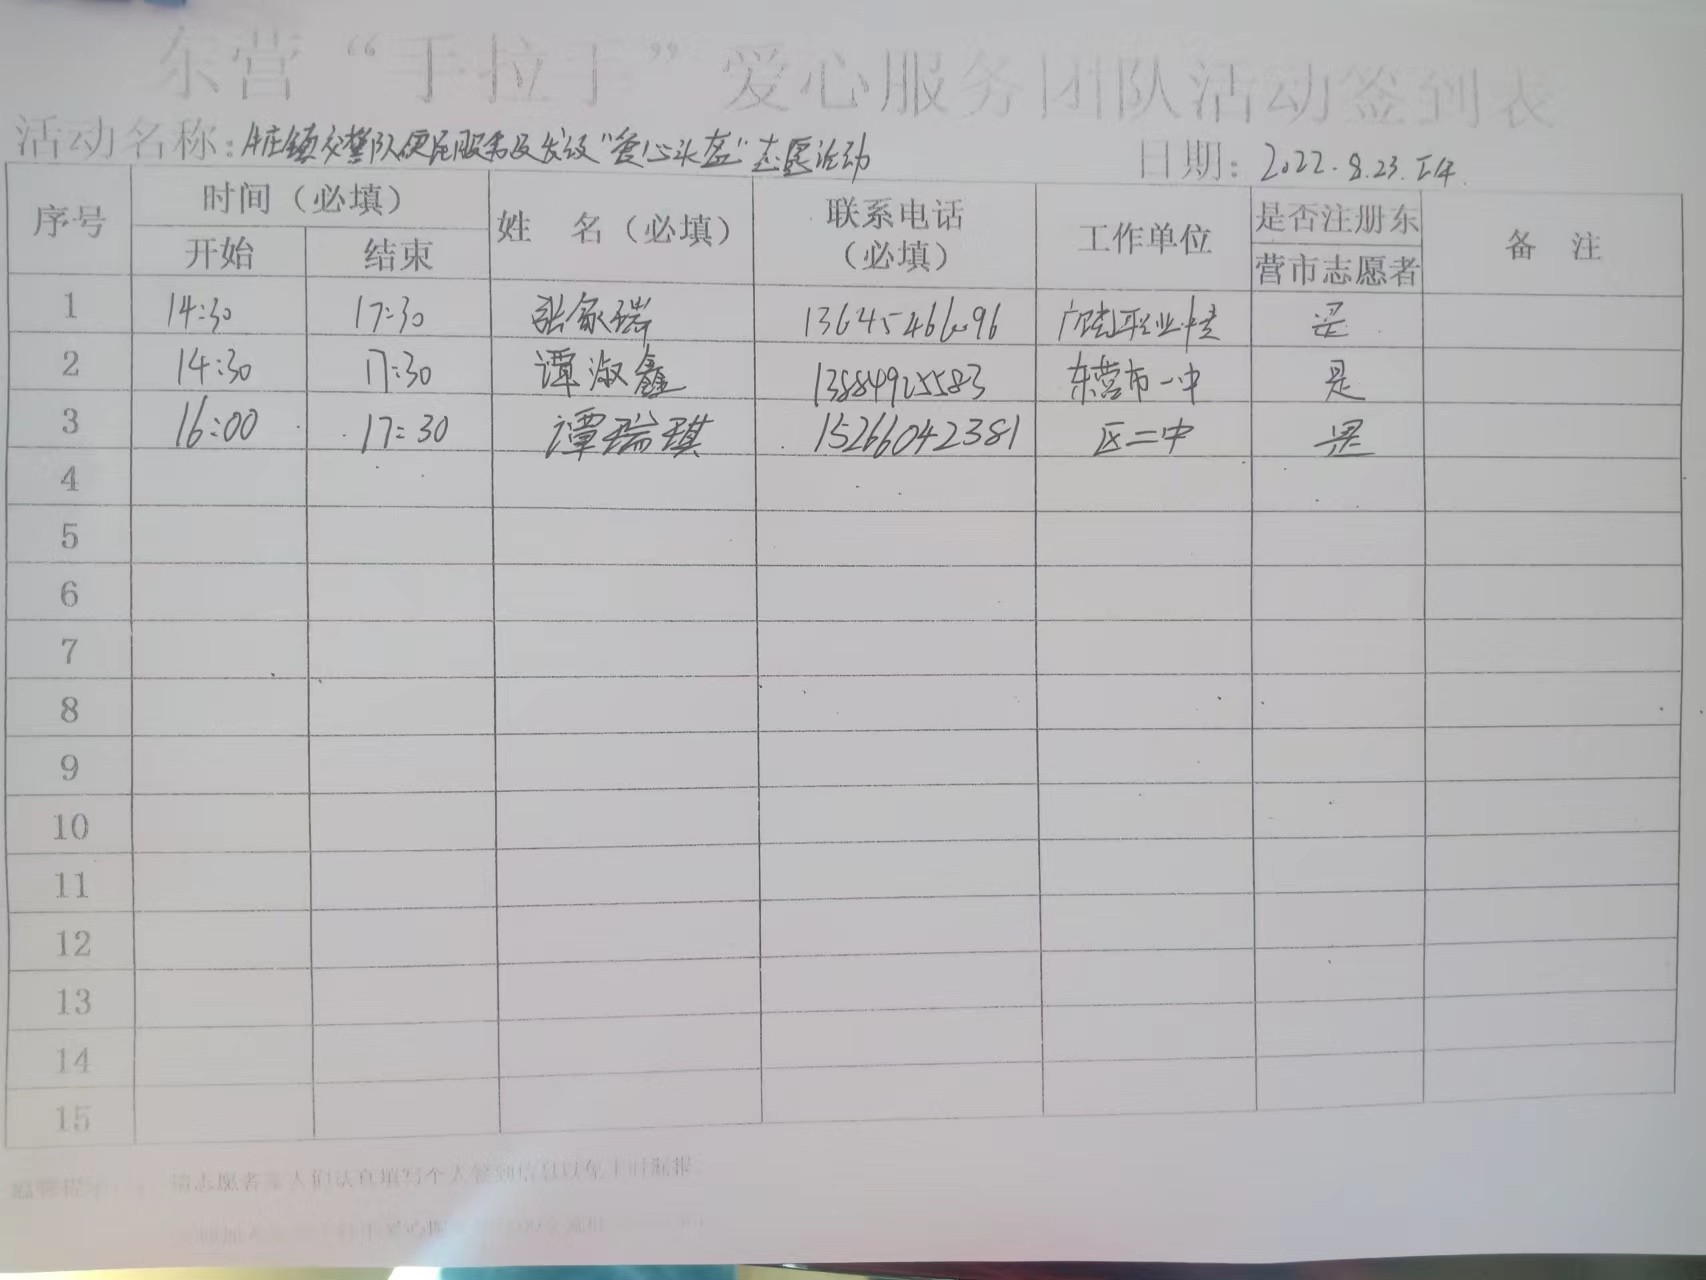 东营“手拉手”爱心服务团队活动签到表
活动名称：牛庄镇交警队便民服务及发放“爱心头盔”志愿活动
日期：2022.8.23.下午.
序号 时间（必填） 姓 名（必填） 联系电话（必填） 工作单位 是否注册东营市志愿者 备 注
开始 结束
1 14:30 17:30 张家瑞 13645466096 职业中专 是
2 14:30 17:30 谭淑鑫 13884925583 东营市一中 是
3 16:00 17:30 谭瑞琪 15266042381 区二中 是
4
5
6
7
8
9
10
11
12
13
14
15
请志愿者 人们认真填写个人签到信息以免